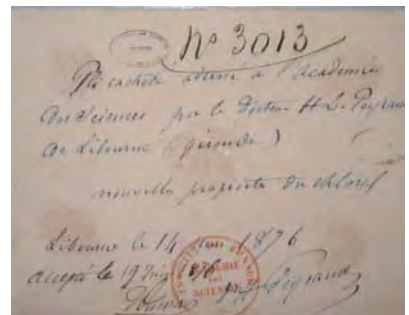 N° 3013
Pli cacheté adressé à l'académie
Des Sciences par le Docteur H. L. Peyraud
De Libourne (gironde)
nouvelle propriété du chloral
Libourne le 14 1876
accepté le 19
ACADÉMIE
DES
SCIENCES
Peyraud